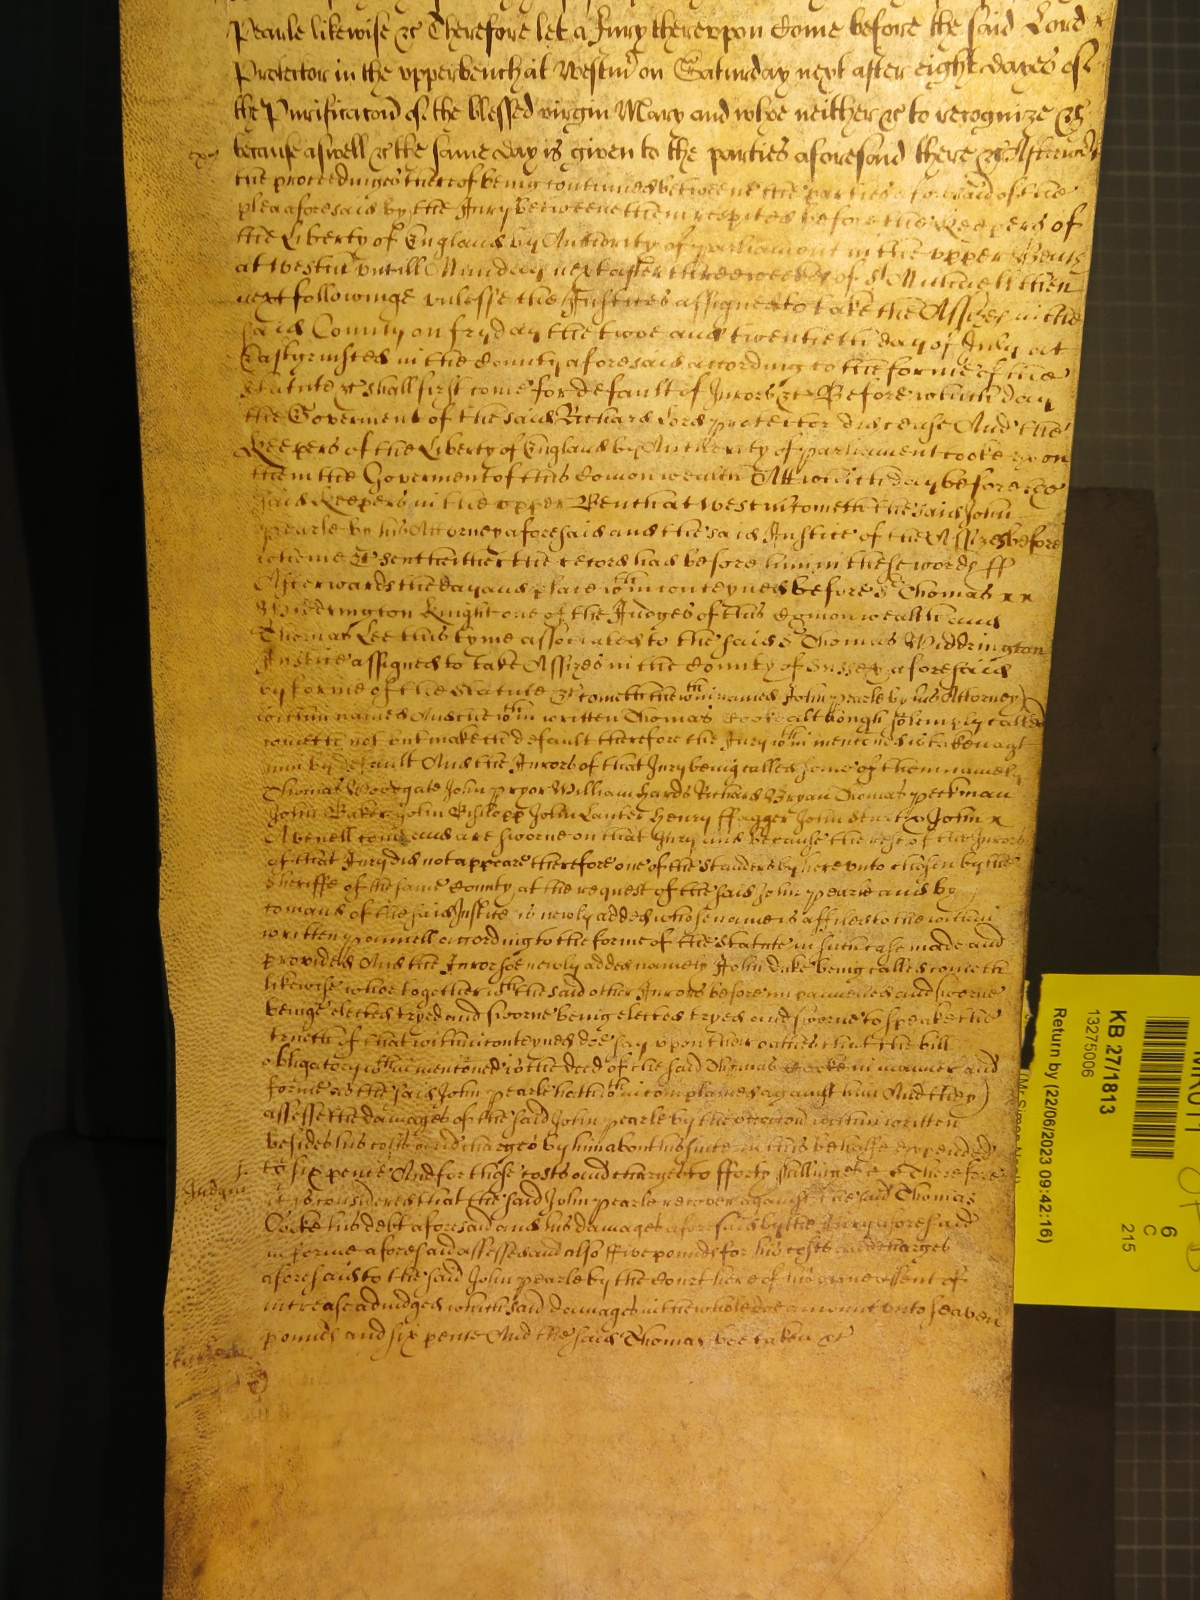 Pearle likewise &c Therefore let a Jury thereupon Come before the said Lord x
Protector in the upper bench at Westmr on Saturday next after eight dayes of
the Purificacon of the blessed virgin Mary and whoe neither &c to recognize &c
because aswell &c the same day is given to the parties aforesaid there &c Afterwards
the proceedinges thereof being continued betweene the parties aforesaid of the
plea aforesaid by the Jury betweene them respited before the Keepers of
the Liberty of England by Authority of parliament in the upper Bench
at Westmr untill Munday next after three weekes of St Michaell then
next followinge unlesse the Justices assigned to take the Assizes in the
said County on fryday the twoe and twentieth day of July at
Eastgrinsted in the County aforesaid according to the forme of the
Statute &c shall first come for default of Jurors &c Before which day
the Goverment of the said Richard Lord protector did cease And the
Keepers of the Liberty of England by Authority of parliament tooke upon
them the Goverment of this Comonwealth Att which day before the
said Keepers in the upper Bench at Westmr cometh the said John
Pearle by his Attorney aforesaid and the said Justice of the Assizes before
whome &c sent hither the record had before him in these words ff
Afterwards the day and place wthin conteyned before Sr Thomas x x
Widdrington Knight one of the Judges of this Comonwealth and
Thomas Lee this tyme associated to the said Sr Thomas Widdrington
Justice assigned to take Assizes in the County of Sussex aforesaid
by forme of the Statute &c cometh the wthin named John pearle by his Attorney
within named And the wthin written Thomas Cooke although solemnly called
cometh not but maketh default therefore the Jury wthin mentioned is taken agt
him by default And the Jurors of that Jury being called some of them namely
Thomas Woodgate John pryor William Hards Richard Bryan Thomas peckman
John Baker John Bishopp John Lanter Henry ffagger John Sturt & John x
Avenell come and are sworne on that Jury and because the rest of the Jurors
of that Jury did not appeare therefore one of the standers by hereunto chosen by the
Sheriffe of the same County at the request of the said John pearle and by
comand of the said Justice is newly added whose name is affiled to the within
written pannell according to the forme of the Statute in such case made and
provided And the Juror soe newly added namely John Duke being called cometh
likewise whoe together wth the said other Jurors before impannelled and sworne
beinge elected tryed and sworne being elected tryed and sworne to speake the
trueth of that within conteyned doe say upon their oathes that the bill
obligatory wthin mentioned is the deed of the said Thomas Cooke in manner and
forme as the said John pearle hath wthin complained against him And they
assesse the damages of the said John pearle by the occasion within written
besides his costs and charges by him about his suite in this behalfe expended
to six pence And for those costs and charges to fforty shillinges &c Therefore
Judgmt
it is considered that the said John pearle recover against the said Thomas
Cocke his debt aforesaid and his damages aforesaid by the Jury aforesaid
in forme aforesaid assessed and also ffive pounds for his costs and charges
aforesaid to the said John pearle by the Court here of his owne assent of
increase adjudged which said damages in the whole doe amount unto seaven
pounds and six pence And the said Thomas bee taken &c
KB 27/1813
13275006
Return by (22/06/2023 09:42:16)
6
C
215